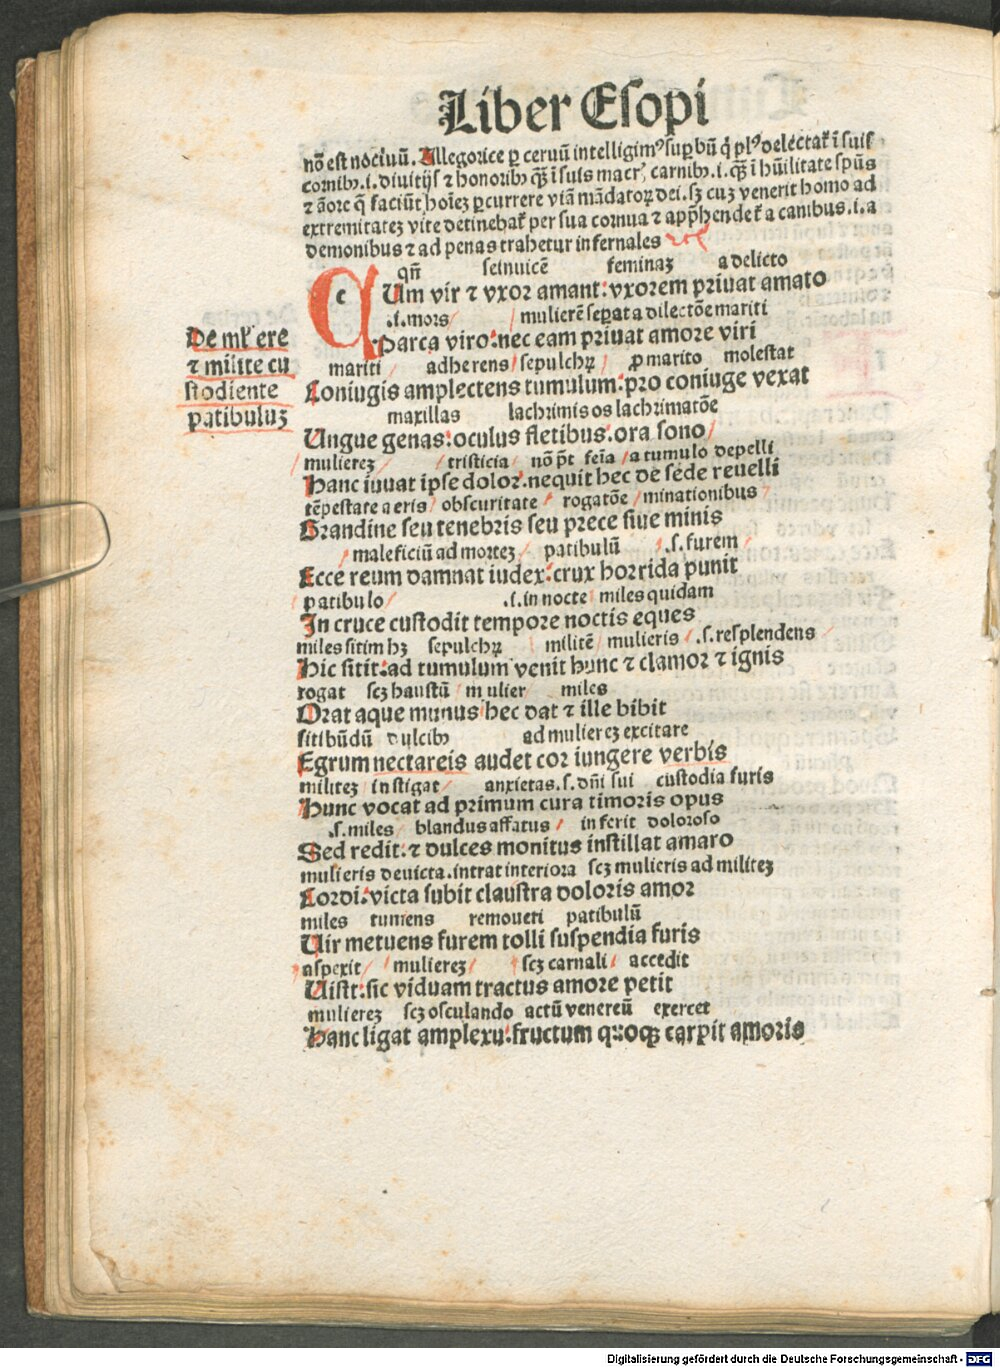 Liber Esopi
nō est nociuū. Allegorice ꝑ ceruū intelligimꝰ suꝑbū q̇ plꝰ delectat̃ ī suis
cornibꝫ .i. diuitijs ⁊ honoribꝫ q̄ꝫ ī suis macrꝭ carnibꝫ .i. q̄ꝫ ī hūilitate spūs
⁊ āore q̄ faciūt hoīeꝫ ꝑcurrere viā mādatoꝝ dei. sꝫ cuꝫ venerit homo ad
extremitateꝫ vite detinebat̃ per sua cornua ⁊ app̄hendet̃ a canibus .i. a
demonibus ⁊ ad penas trahetur infernales
qn̄ seinuicē feminaꝫ a delicto
c Um vir ⁊ vxor amant: vxorem priuat amato
.i. mors mulierē seꝑata dilectōe mariti
Parca viro: nec eam priuat amore viri
De ml̃ere
⁊ milite cu
stodiente
patibuluꝫ
mariti adherens sepulchꝝ ꝓ marito molestat
Coniugis amplectens tumulum: pro coniuge vexat
maxillas lachrimis os lachrimatōe
Ungue genas: oculus fletibus. ora sono
muliereꝫ tristicia nō pt̄ feīa a tumulo depelli
Hanc iuuat ipse dolor. nequit hec de sede reuelli
tēpestate aeris obscuritate rogatōe minationibus
Grandine seu tenebris seu prece siue minis
maleficiū ad morteꝫ patibulū .s. furem
Ecce reum damnat iudex: crux horrida punit
patibulo .i. in nocte miles quidam
In cruce custodit tempore noctis eques
miles sitim hꝫ sepulchꝝ militē mulieris .s. resplendens
Hic sitit: ad tumulum venit hunc ⁊ clamor ⁊ ignis
rogat scꝫ haustū mulier miles
Orat aque munus hec dat ⁊ ille bibit
sitibūdū dulcibꝫ ad muliereꝫ excitare
Egrum nectareis audet cor iungere verbis
militeꝫ instigat anxietas .s. dn̄i sui custodia furis
Hunc vocat ad primum cura timoris opus
.s. miles blandus affatus inferit doloroso
Sed redit: ⁊ dulces monitus instillat amaro
mulieris deuicta. intrat interiora scꝫ mulieris ad militeꝫ
Cordi: victa subit claustra doloris amor
miles tumens remoueri patibulū
Uir metuens furem tolli suspendia furis
aspexit muliereꝫ scꝫ carnali accedit
Uisit: sic viduam tractus amore petit
muliereꝫ scꝫ osculando actū venereū exercet
Hanc ligat amplexu: fructum quoqꝫ carpit amoris
Digitalisierung gefördert durch die Deutsche Forschungsgemeinschaft - DFG